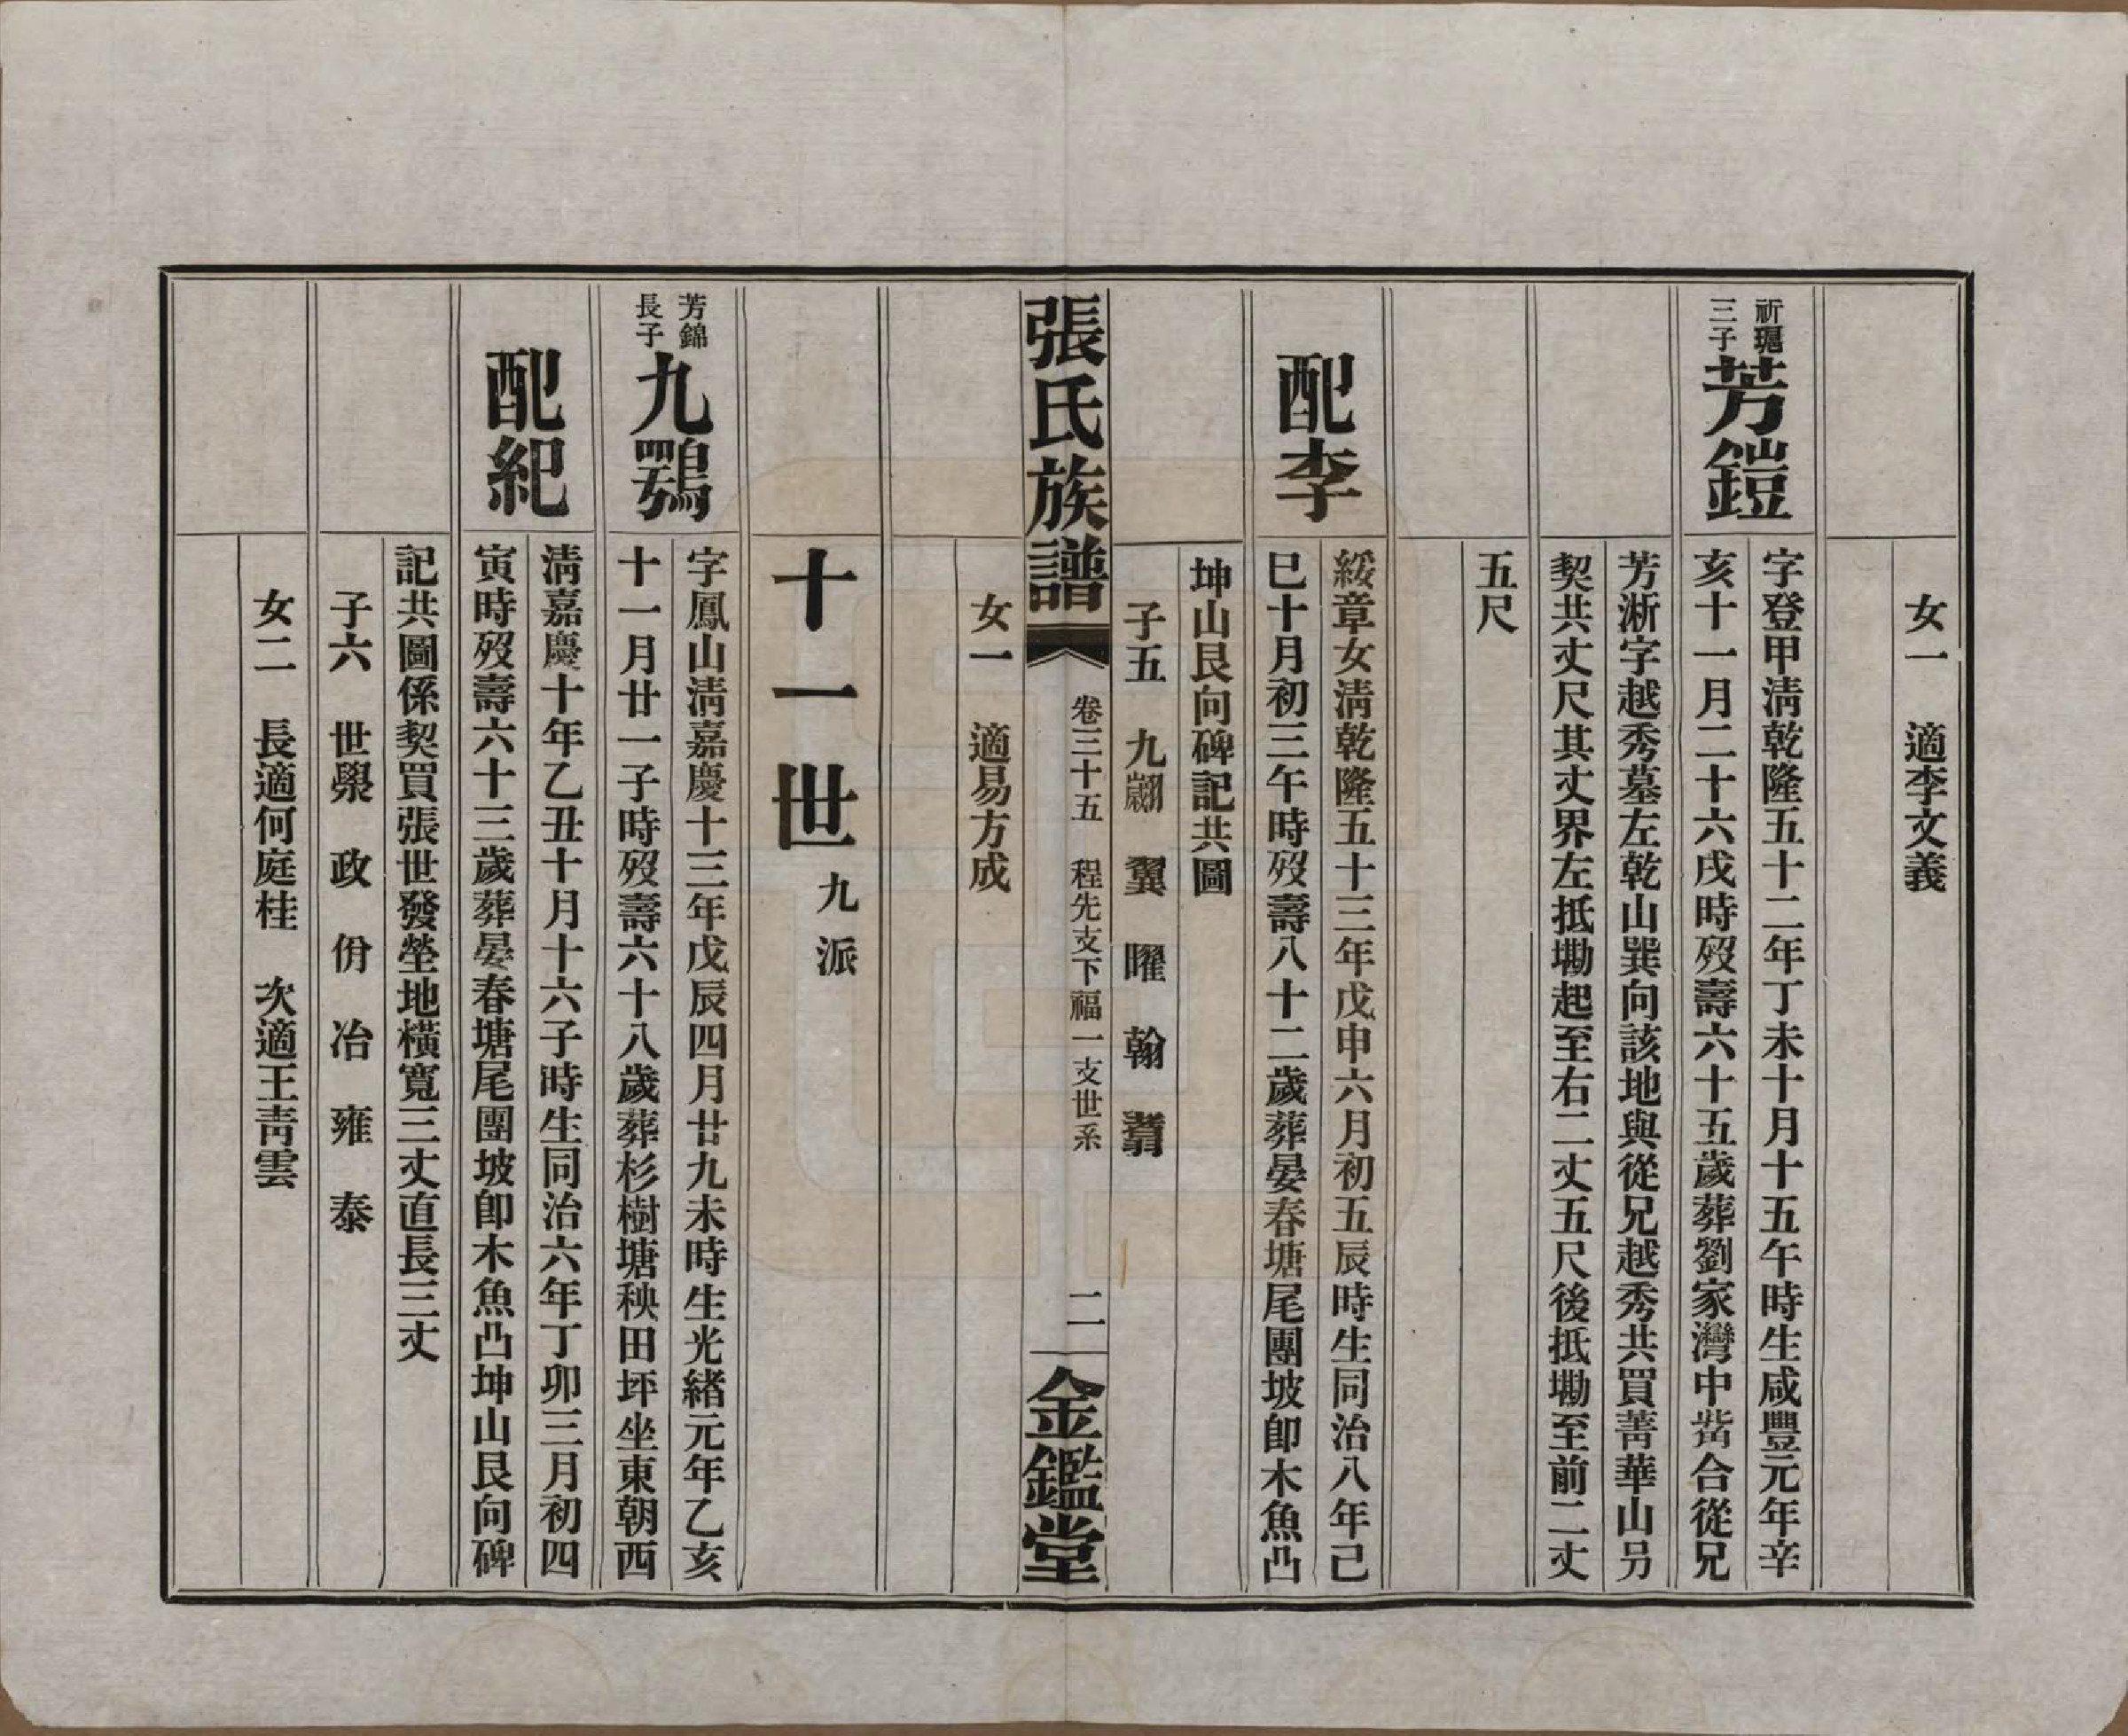 女一　適李文義
祈琨三子
芳鎧
字登甲淸乾隆五十二年丁未十月十五午時生咸豐元年辛
亥十一月二十六戌時歿壽六十五歲葬劉家灣中嵴合從兄
芳淅字越秀墓左乾山巽向該地與從兄越秀共買菁華山另
契共丈尺其丈界左抵墈起至右二丈五尺後抵墈至前二丈
五尺
配李
綏章女淸乾隆五十三年戊申六月初五辰時生同治八年己
巳十月初三午時歿壽八十二歲葬晏春塘尾團坡卽木魚凸
坤山艮向碑記共圖
子五　九翽　翼　曜　翰　翥
張氏族譜　卷三十五　程先支下福一支世系　二　金鑑堂
女一　適易方成
十一世　九派
芳錦長子
九鶚
字鳳山淸嘉慶十三年戊辰四月廿九未時生光緖元年乙亥
十一月廿一子時歿壽六十八歲葬杉樹塘秧田坪坐東朝西
配紀
淸嘉慶十年乙丑十月十六子時生同治六年丁卯三月初四
寅時歿壽六十三歲葬晏春塘尾團坡卽木魚凸坤山艮向碑
記共圖係契買張世發塋地橫寬三丈直長三丈
子六　世榘　政　份　治　雍　泰
女二　長適何庭桂　次適王靑雲